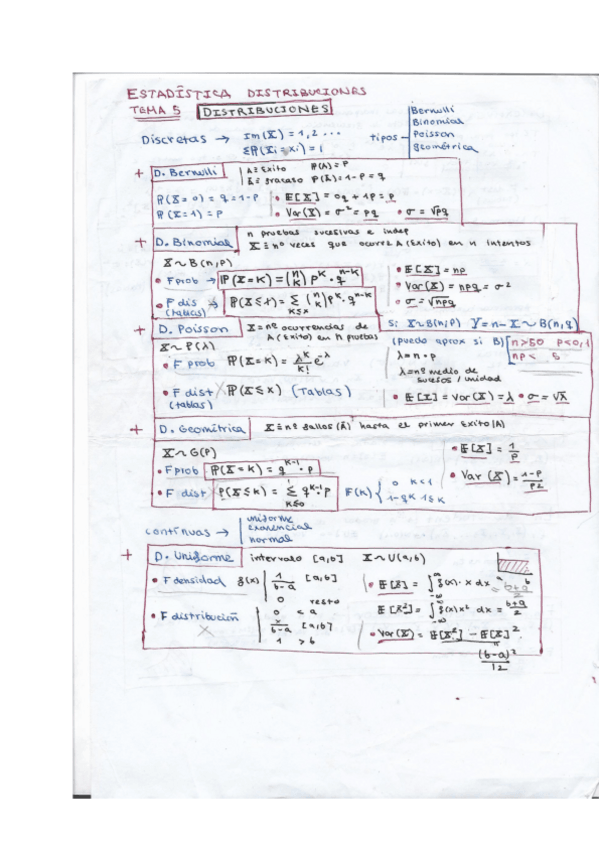 ESTADÍSTICA DISTRIBUCIONES
TEMA 5 DISTRIBUCIONES
Discretas → Im(X) = 1,2 ...
ΣP(Xi = xi) = 1
tipos
Bernulli
Binomial
Poisson
geométrica
+ D. Bernulli
A ≡ Exito P(A) = P
Ā ≡ fracaso P(Ā) = 1-P = q
P(X = 0) = q = 1-P
P(X = 1) = P
• E[X] = 0q + 1P = P
• Var(X) = σ² = pq • σ = √pq
+ D. Binomial
n pruebas sucesivas e indep
X ≡ nº veces que ocurre A (Exito) en n intentos
X ~ B(n,p)
• F prob → P(X = K) = (n K) p^K · q^n-K
• F dis → P(X ≤ x) = Σ K≤x (n K) p^K · q^n-K
(tablas)
• E[X] = np
• Var(X) = npq = σ²
• σ = √npq
+ D. Poisson
X = nº ocurrencias de
A (Exito) en n pruebas
Si X~B(n,p) Y = n-X ~ B(n,q)
X ~ P(λ)
• F prob P(X = K) = λ^K/K! e^-λ
• F dist P(X ≤ x) (Tablas)
(tablas)
(puedo aprox si B) n>50 p<0,1
np < 5
λ = n·p
λ = nº medio de
sucesos / unidad
• E[X] = Var(X) = λ • σ = √λ
+ D. Geométrica
X ≡ nº fallos (Ā) hasta el primer Exito (A)
X ~ G(P)
• F prob P(X = K) = q^K-1 · p
• F dist P(X ≤ K) = Σ K≤0 q^K-1 · p
F(K) { 0 K<1
1-qK 1≤K
• E[X] = 1/P
• Var (X) = 1-P/P2
continuas →
uniforme
exponencial
normal
+ D. Uniforme
intervalo [a,b] X ~ U(a,b)
• F densidad f(x)
1/b-a [a,b]
0 resto
• F distribución
0 < a
x/b-a [a,b]
1 > b
a b
• E[X] = ∫ f(x) · x dx = b+a/2
E[X²] = ∫ f(x) x² dx = b+a/2
• Var(X) = E[X²] - E[X]²
(b-a)²/12